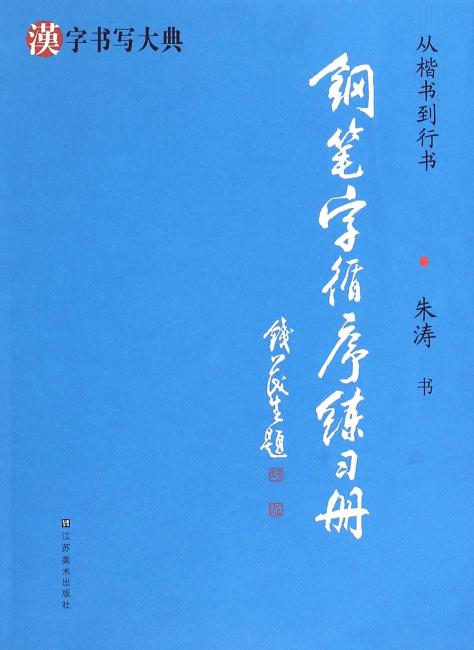 漢字书写大典
从楷书到行书
朱涛 书
钢笔字循序练习册
钱茂生题
江苏美术出版社